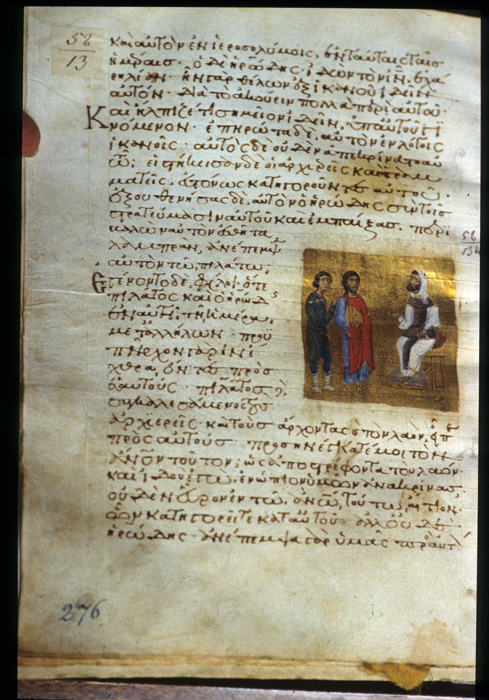 58
13
καὶ αὐτὸν ἐν ἱεροσολύμοις, ἐν ταύταις ταῖς
ἡμέραις· ὁ δὲ ἡρώδης ἰδὼν τὸν ιν, ἐχά
ρη λίαν· ἦν γὰρ θέλων ἐξ ἱκανοῦ ἰδεῖν
αὐτόν· διὰ τὸ ἀκούειν πολλὰ περὶ αὐτοῦ·
Καὶ ἤλπιζέ τι σημεῖον ἰδεῖν, ὑπ' αὐτοῦ γι
νόμενον· ἐπηρώτα δὲ, αὐτὸν ἐν λόγοις
ἱκανοῖς· αὐτὸς δὲ οὐδὲν ἀπεκρίνατο αὐ
τῶ· εἱστήκεισαν δὲ οἱ ἀρχιερεῖς καὶ οἱ γραμ
ματεῖς, εὐτόνως κατηγοροῦντες αὐτοῦ·
ἐξουθενήσας δὲ, αὐτὸν ὁ ἡρώδης σὺν τοῖς
στρατεύμασιν αὐτοῦ καὶ ἐμπαίξας· περι
βαλὼν αὐτὸν ἐσθῆτα
λαμπρὰν, ἀνέπεμψεν
αὐτὸν τῶ, πιλάτω·
Ἐγένοντο δὲ, φίλοι ὅτε
πιλᾶτος καὶ ὁ ἡρώδης
ἐν αὐτῆ τῆ ἡμέρα,
μετ' ἀλλήλων· προϋ
πῆρχον γὰρ ἐν ἔ
χθρα, ὄντες πρὸς
ἑαυτούς· πιλᾶτος δὲ,
συγκαλεσάμενος τοὺς
ἀρχιερεῖς καὶ τοὺς ἄρχοντας καὶ τὸν λαὸν, εἶπε
πρὸς αὐτούς· προσηνέγκατέ μοι τὸν
ἄνον τοῦτον, ὡς ἀποστρέφοντα τὸν λαόν·
καὶ ἰδοὺ ἐγὼ, ἐνώπιον ὑμῶν ἀνακρίνας,
οὐδὲν εὗρον ἐν τῶ, ἀνω, τούτω, αἴτιον
ὧν κατηγορεῖτε κατ' αὐτοῦ· ἀλλ' οὐδὲ
ἡρώδης· ἀνέπεμψα γὰρ ὑμᾶς πρὸς αὐτόν
276